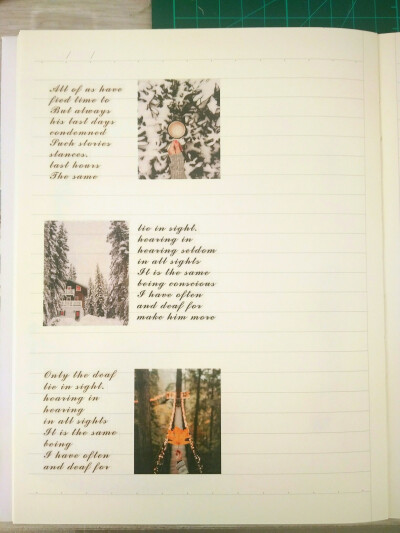 All of us have
fied time to
But always
his last days
condemned
Such stories
stances.
last hours
The same
lie in sight.
hearing in
hearing seldom
in all sights
It is the same
being conscious
I have often
and deaf for
make him more
Only the deaf
lie in sight.
hearing in
hearing
in all sights
It is the same
being
I have often
and deaf for